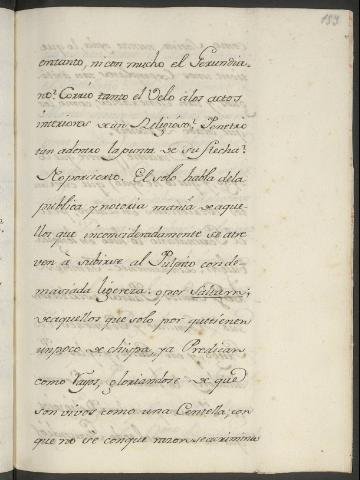 153
entanto, ni con mucho el Gerundia-
no? Corrió tanto el Velo à los actos
interiores de un Religioso? Penetrò
tan adentro la punta de su flecha?
No por cierto. El solo habla dela
publica y notoria manía de aque-
llos que inconsideradamente se atre
ven à subirse al Pulpito con de-
masiada ligereza: o por
de aquellos que solo por que tienen
un poco de chispa, ya Predican
como Rayos, gloriandose de que
son vivos como una Centella; con
que no se con que razon se acrimina